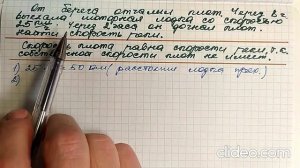 От берега отчалил плот. Через 8 ч.
моторная лодка со скоростью
25 км Через 2 часа он догнал плот.
Найти скорость реки.
Скорость плота равна скорости реки, т.к.
собственная скорость плот не имеет.
1) 25 = 50 км (расстояние лодка прох.)
2)
clideo.com